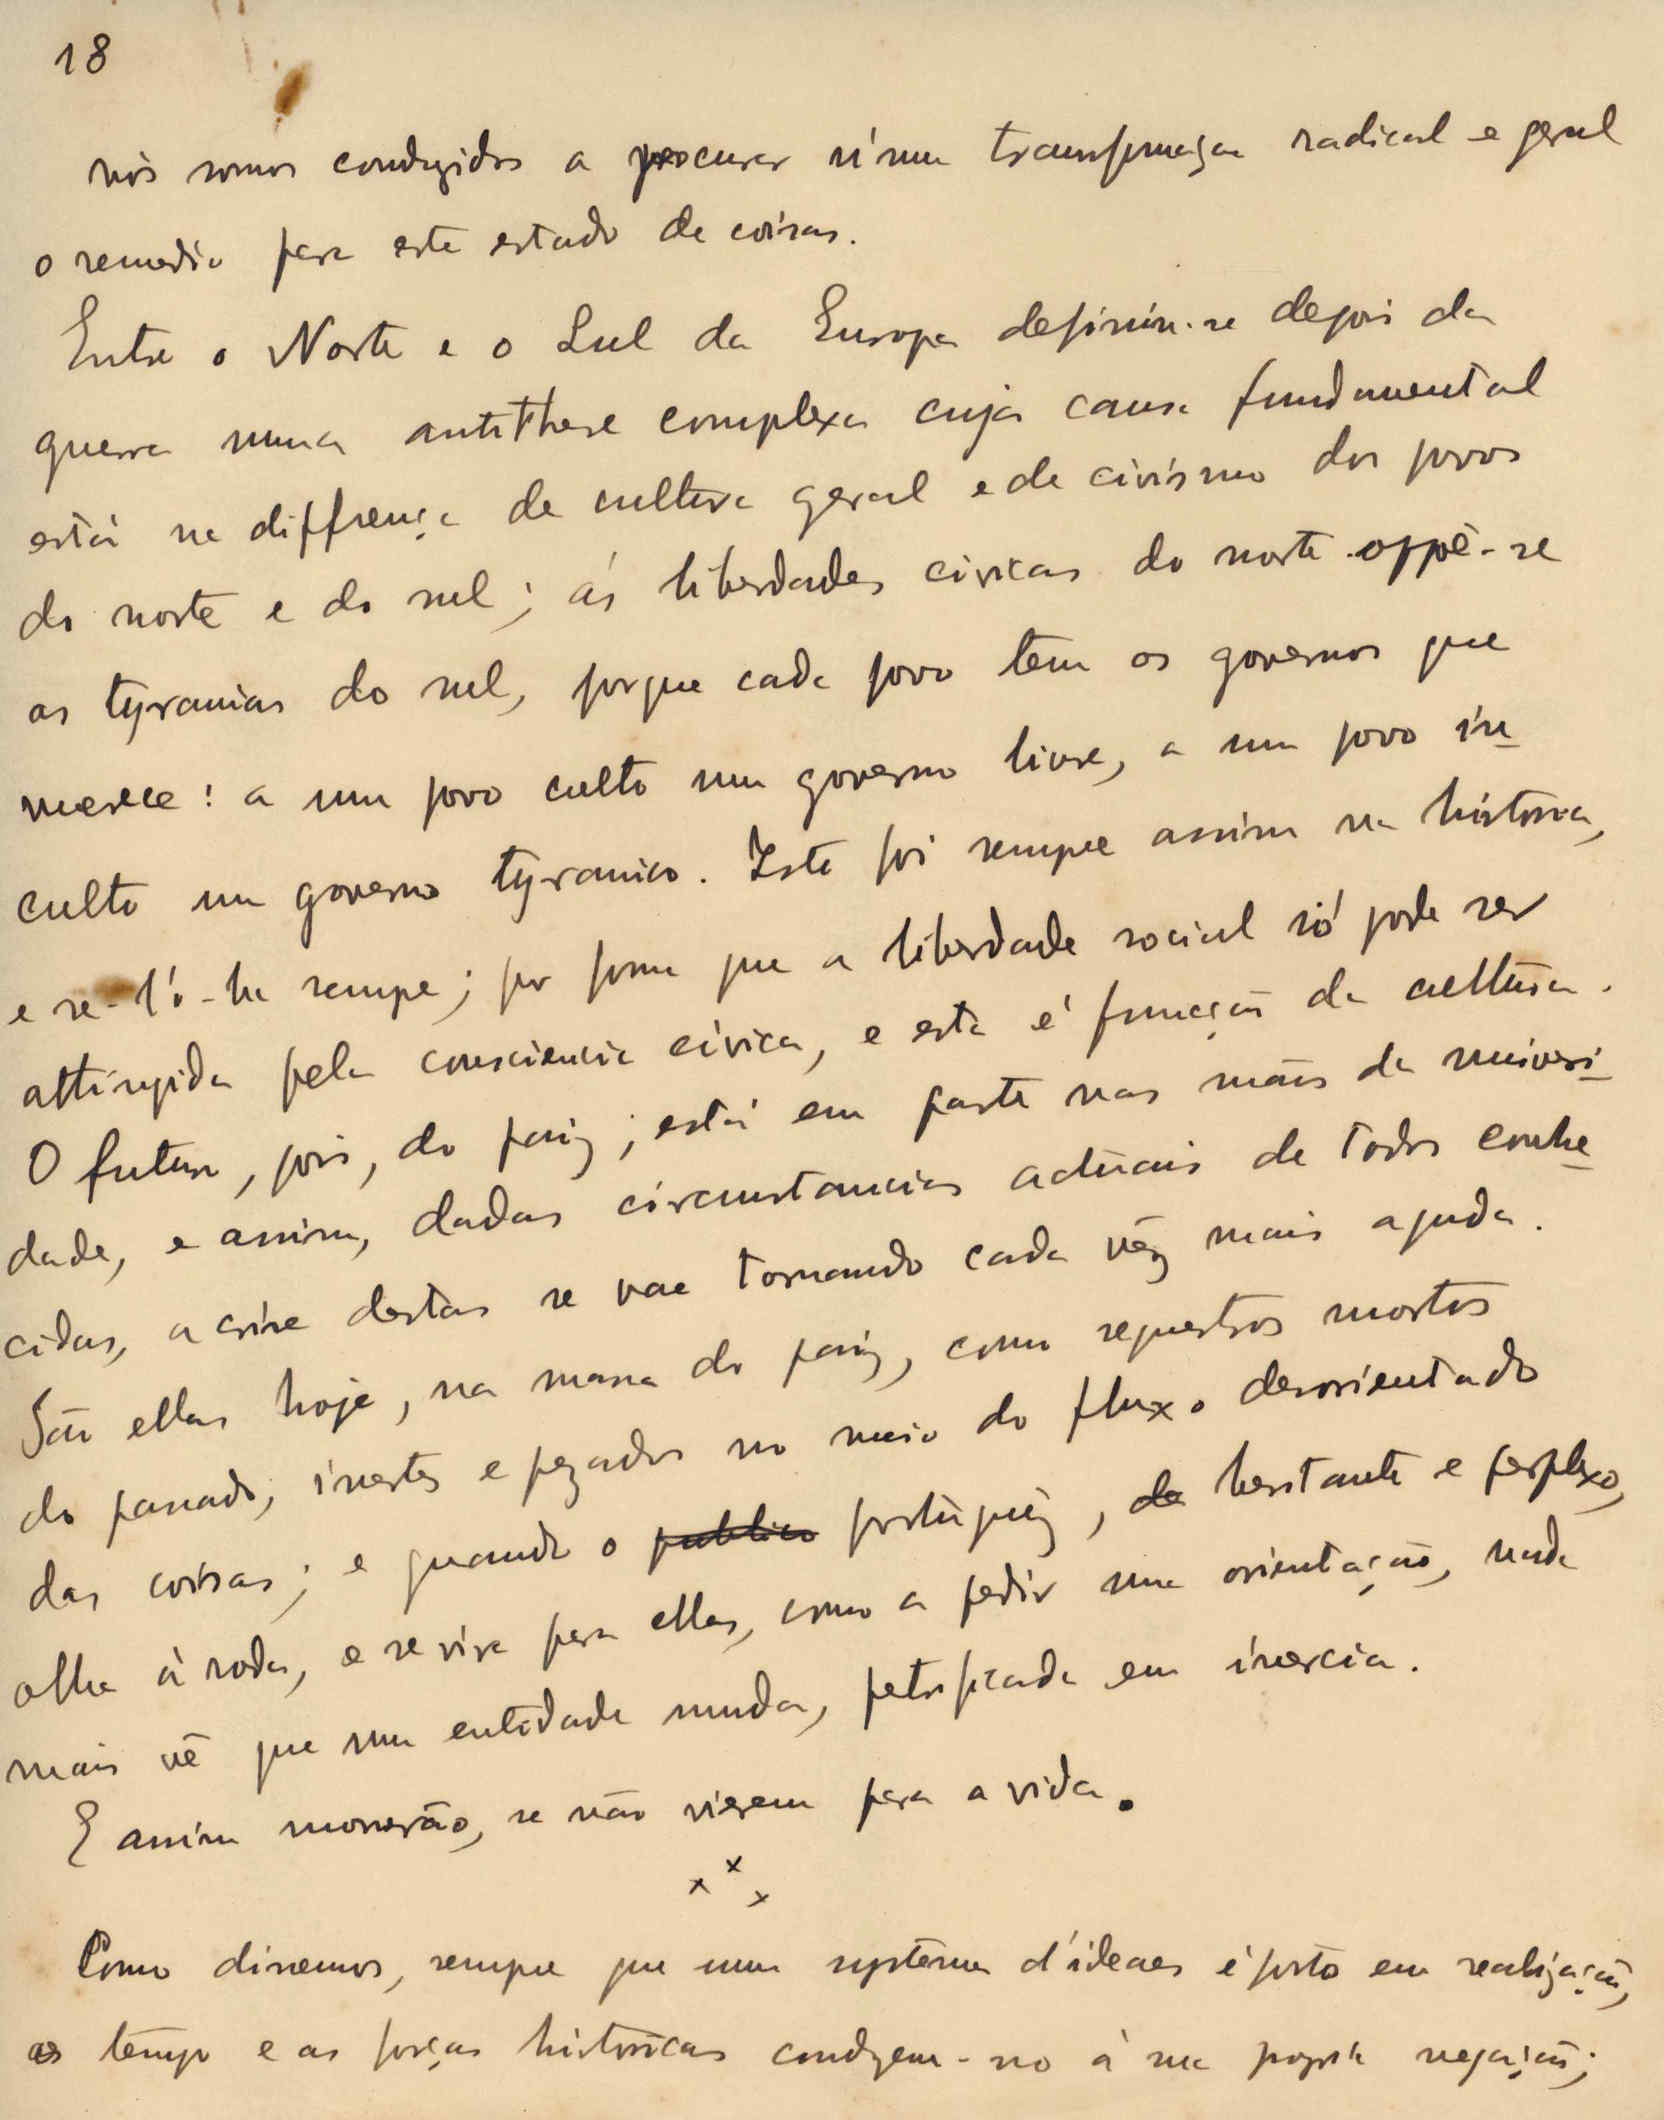 18
nós somos conduzidos a procurar n'uma transformação radical e geral
o remedio para este estado de coisas.
Entre o Norte e o Sul da Europa definiu-se depois da
guerra uma antithese complexa cuja causa fundamental
está na diffrença de cultura geral e de civismo dos povos
do norte e do sul; ás liberdades civicas do norte oppõe-se
as tyranias do sul, porque cada povo tem os governos que
merece: a um povo culto um governo livre, a um povo in-
culto um governo tyranico. Isto foi sempre assim na historia,
e se-l'o-ha sempre; por forma que a liberdade social só pode ser
attingida pela consciencia civica, e esta é funcção da cultura.
O futuro, pois, do paiz, está em parte nas mãos da universi-
dade, e assim, dadas circumstancias actuais de todos conhe-
cidas, a crise destas se vae tornando cada vêz mais aguda.
São ellas hoje, na massa do paiz, como sequestros mortos
do passado, inertes e pezados no meio do fluxo desorientado
das coisas; e quando o publico portuguêz, de hesitante e perplexo,
olha á roda, e se vira para ellas, como a pedir uma orientação, nada
mais vê que uma entidade muda, petrificada em inercia.
E assim morrerão, se não vierem para a vida.
x x x
Como dissemos, sempre que um systema d'ideaes é posto em realização,
o tempo e as forças historicas conduzem-no á sua propria negação;